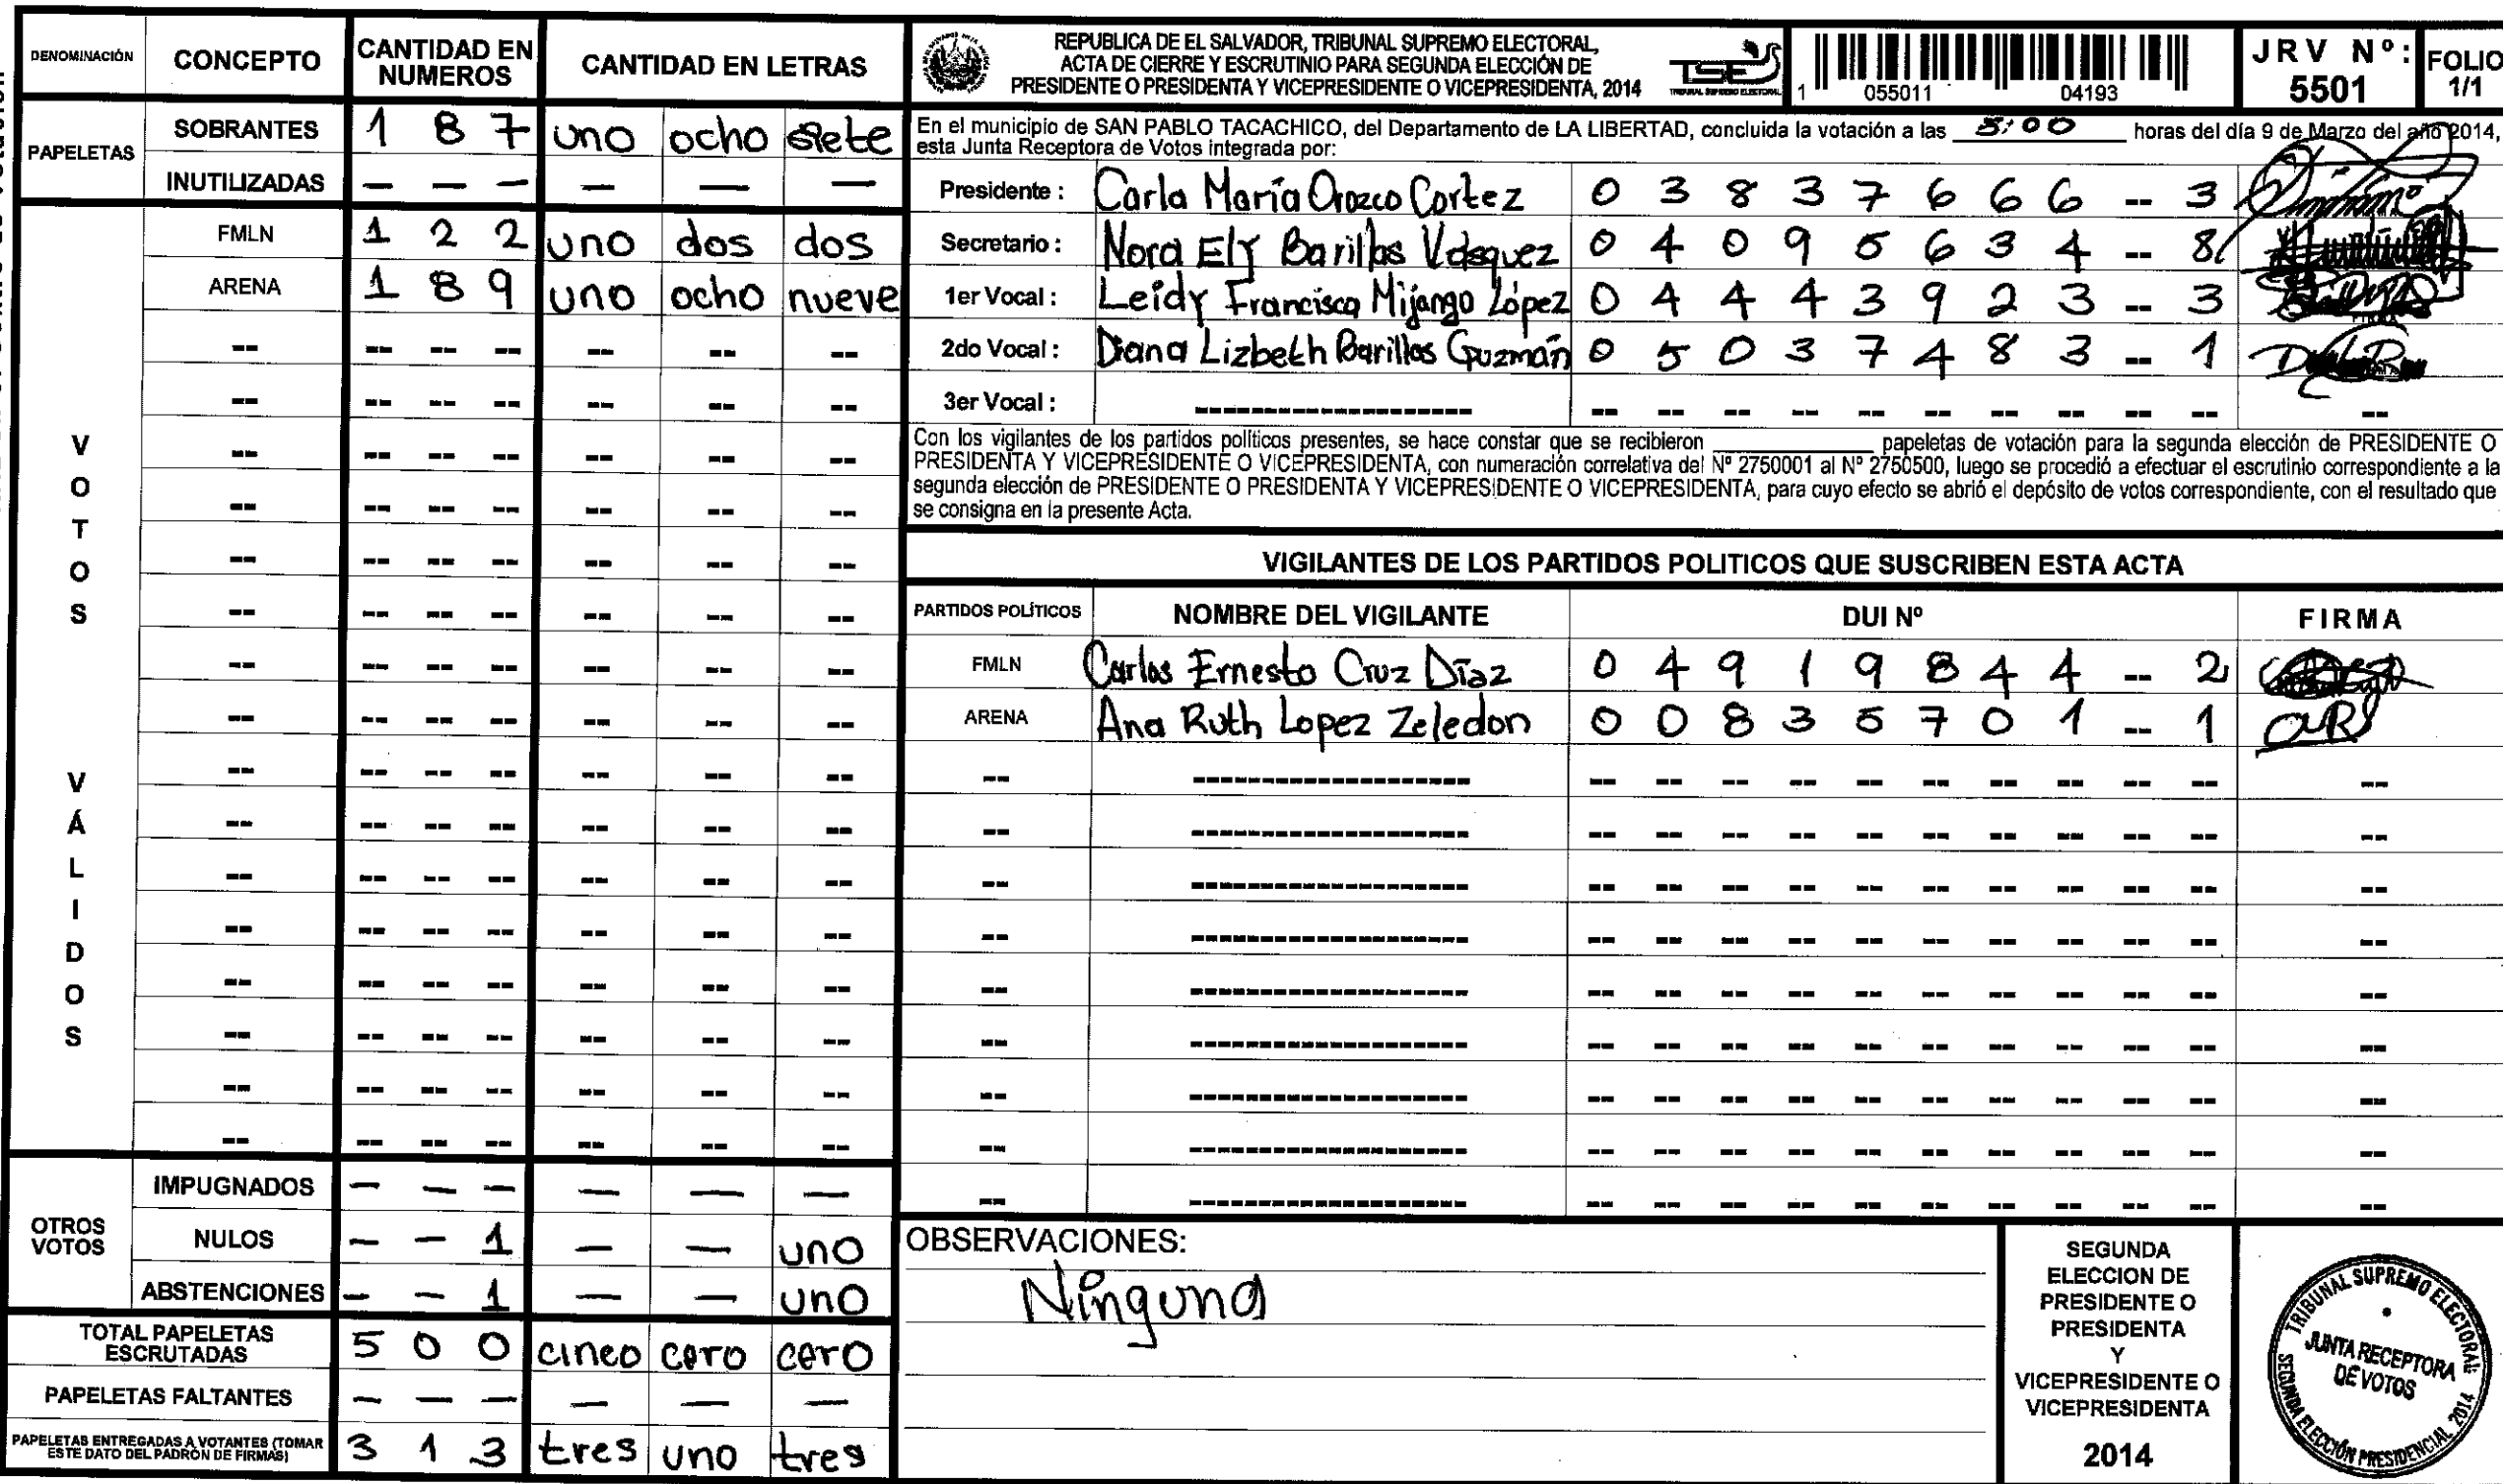 DENOMINACIÓN CONCEPTO CANTIDAD EN NUMEROS CANTIDAD EN LETRAS
PAPELETAS
SOBRANTES 1 8 7 uno ocho siete
INUTILIZADAS — — — — — —
VOTOS VÁLIDOS
FMLN 1 2 2 uno dos dos
ARENA 1 8 9 uno ocho nueve
OTROS VOTOS
IMPUGNADOS — — — — — —
NULOS — — 1 — — uno
ABSTENCIONES — — 1 — — uno
TOTAL PAPELETAS ESCRUTADAS 5 0 0 cinco cero cero
PAPELETAS FALTANTES — — — — — —
PAPELETAS ENTREGADAS A VOTANTES (TOMAR ESTE DATO DEL PADRÓN DE FIRMAS) 3 1 3 tres uno tres
REPUBLICA DE EL SALVADOR, TRIBUNAL SUPREMO ELECTORAL,
ACTA DE CIERRE Y ESCRUTINIO PARA SEGUNDA ELECCIÓN DE
PRESIDENTE O PRESIDENTA Y VICEPRESIDENTE O VICEPRESIDENTA, 2014
TSE
TRIBUNAL SUPREMO ELECTORAL
1 055011 04193
JRV Nº: 5501
FOLIO 1/1
En el municipio de SAN PABLO TACACHICO, del Departamento de LA LIBERTAD, concluida la votación a las 5:00 horas del día 9 de Marzo del año 2014,
esta Junta Receptora de Votos integrada por:
Presidente : Carla María Orozco Cortez 0 3 8 3 7 6 6 6 -- 3
Secretario : Nora Ely Barillas Vásquez 0 4 0 9 5 6 3 4 -- 8
1er Vocal : Leidy Francisca Mijango López 0 4 4 4 3 9 2 3 -- 3
2do Vocal : Diana Lizbeth Barillas Guzmán 0 5 0 3 7 4 8 3 -- 1
3er Vocal :
Con los vigilantes de los partidos políticos presentes, se hace constar que se recibieron ________ papeletas de votación para la segunda elección de PRESIDENTE O
PRESIDENTA Y VICEPRESIDENTE O VICEPRESIDENTA, con numeración correlativa del Nº 2750001 al Nº 2750500, luego se procedió a efectuar el escrutinio correspondiente a la
segunda elección de PRESIDENTE O PRESIDENTA Y VICEPRESIDENTE O VICEPRESIDENTA, para cuyo efecto se abrió el depósito de votos correspondiente, con el resultado que
se consigna en la presente Acta.
VIGILANTES DE LOS PARTIDOS POLITICOS QUE SUSCRIBEN ESTA ACTA
PARTIDOS POLÍTICOS NOMBRE DEL VIGILANTE DUI Nº FIRMA
FMLN Carlos Ernesto Cruz Díaz 0 4 9 1 9 8 4 4 -- 2
ARENA Ana Ruth Lopez Zeledon 0 0 8 3 5 7 0 1 -- 1
OBSERVACIONES:
Ninguna
SEGUNDA
ELECCION DE
PRESIDENTE O
PRESIDENTA
Y
VICEPRESIDENTE O
VICEPRESIDENTA
2014
TRIBUNAL SUPREMO ELECTORAL
JUNTA RECEPTORA
DE VOTOS
SEGUNDA ELECCIÓN PRESIDENCIAL 2014